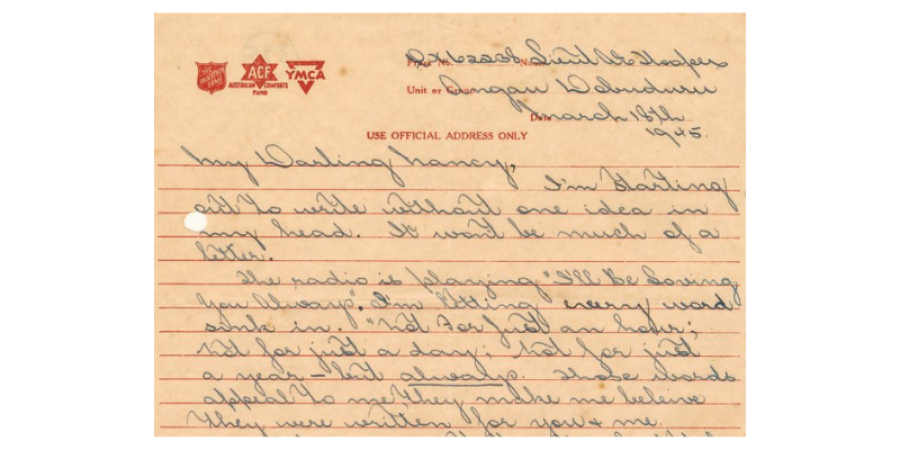 THE SALVATION ARMY
ACF
AUSTRALIAN COMFORTS
FUND
YMCA
Lieut
Unit or Group Angau Dobuduru
Date March 18th
1945.
USE OFFICIAL ADDRESS ONLY
My Darling Nancy,
I'm starting
out to write without one idea in
my head. It won't be much of a
letter.
The radio is playing "I'll Be Loving
You Always". I'm letting every word
sink in. "Not for just an hour;
not for just a day; not for just
a year – but always. Those words
appeal to me, they make me beleive
they were written for you & me.